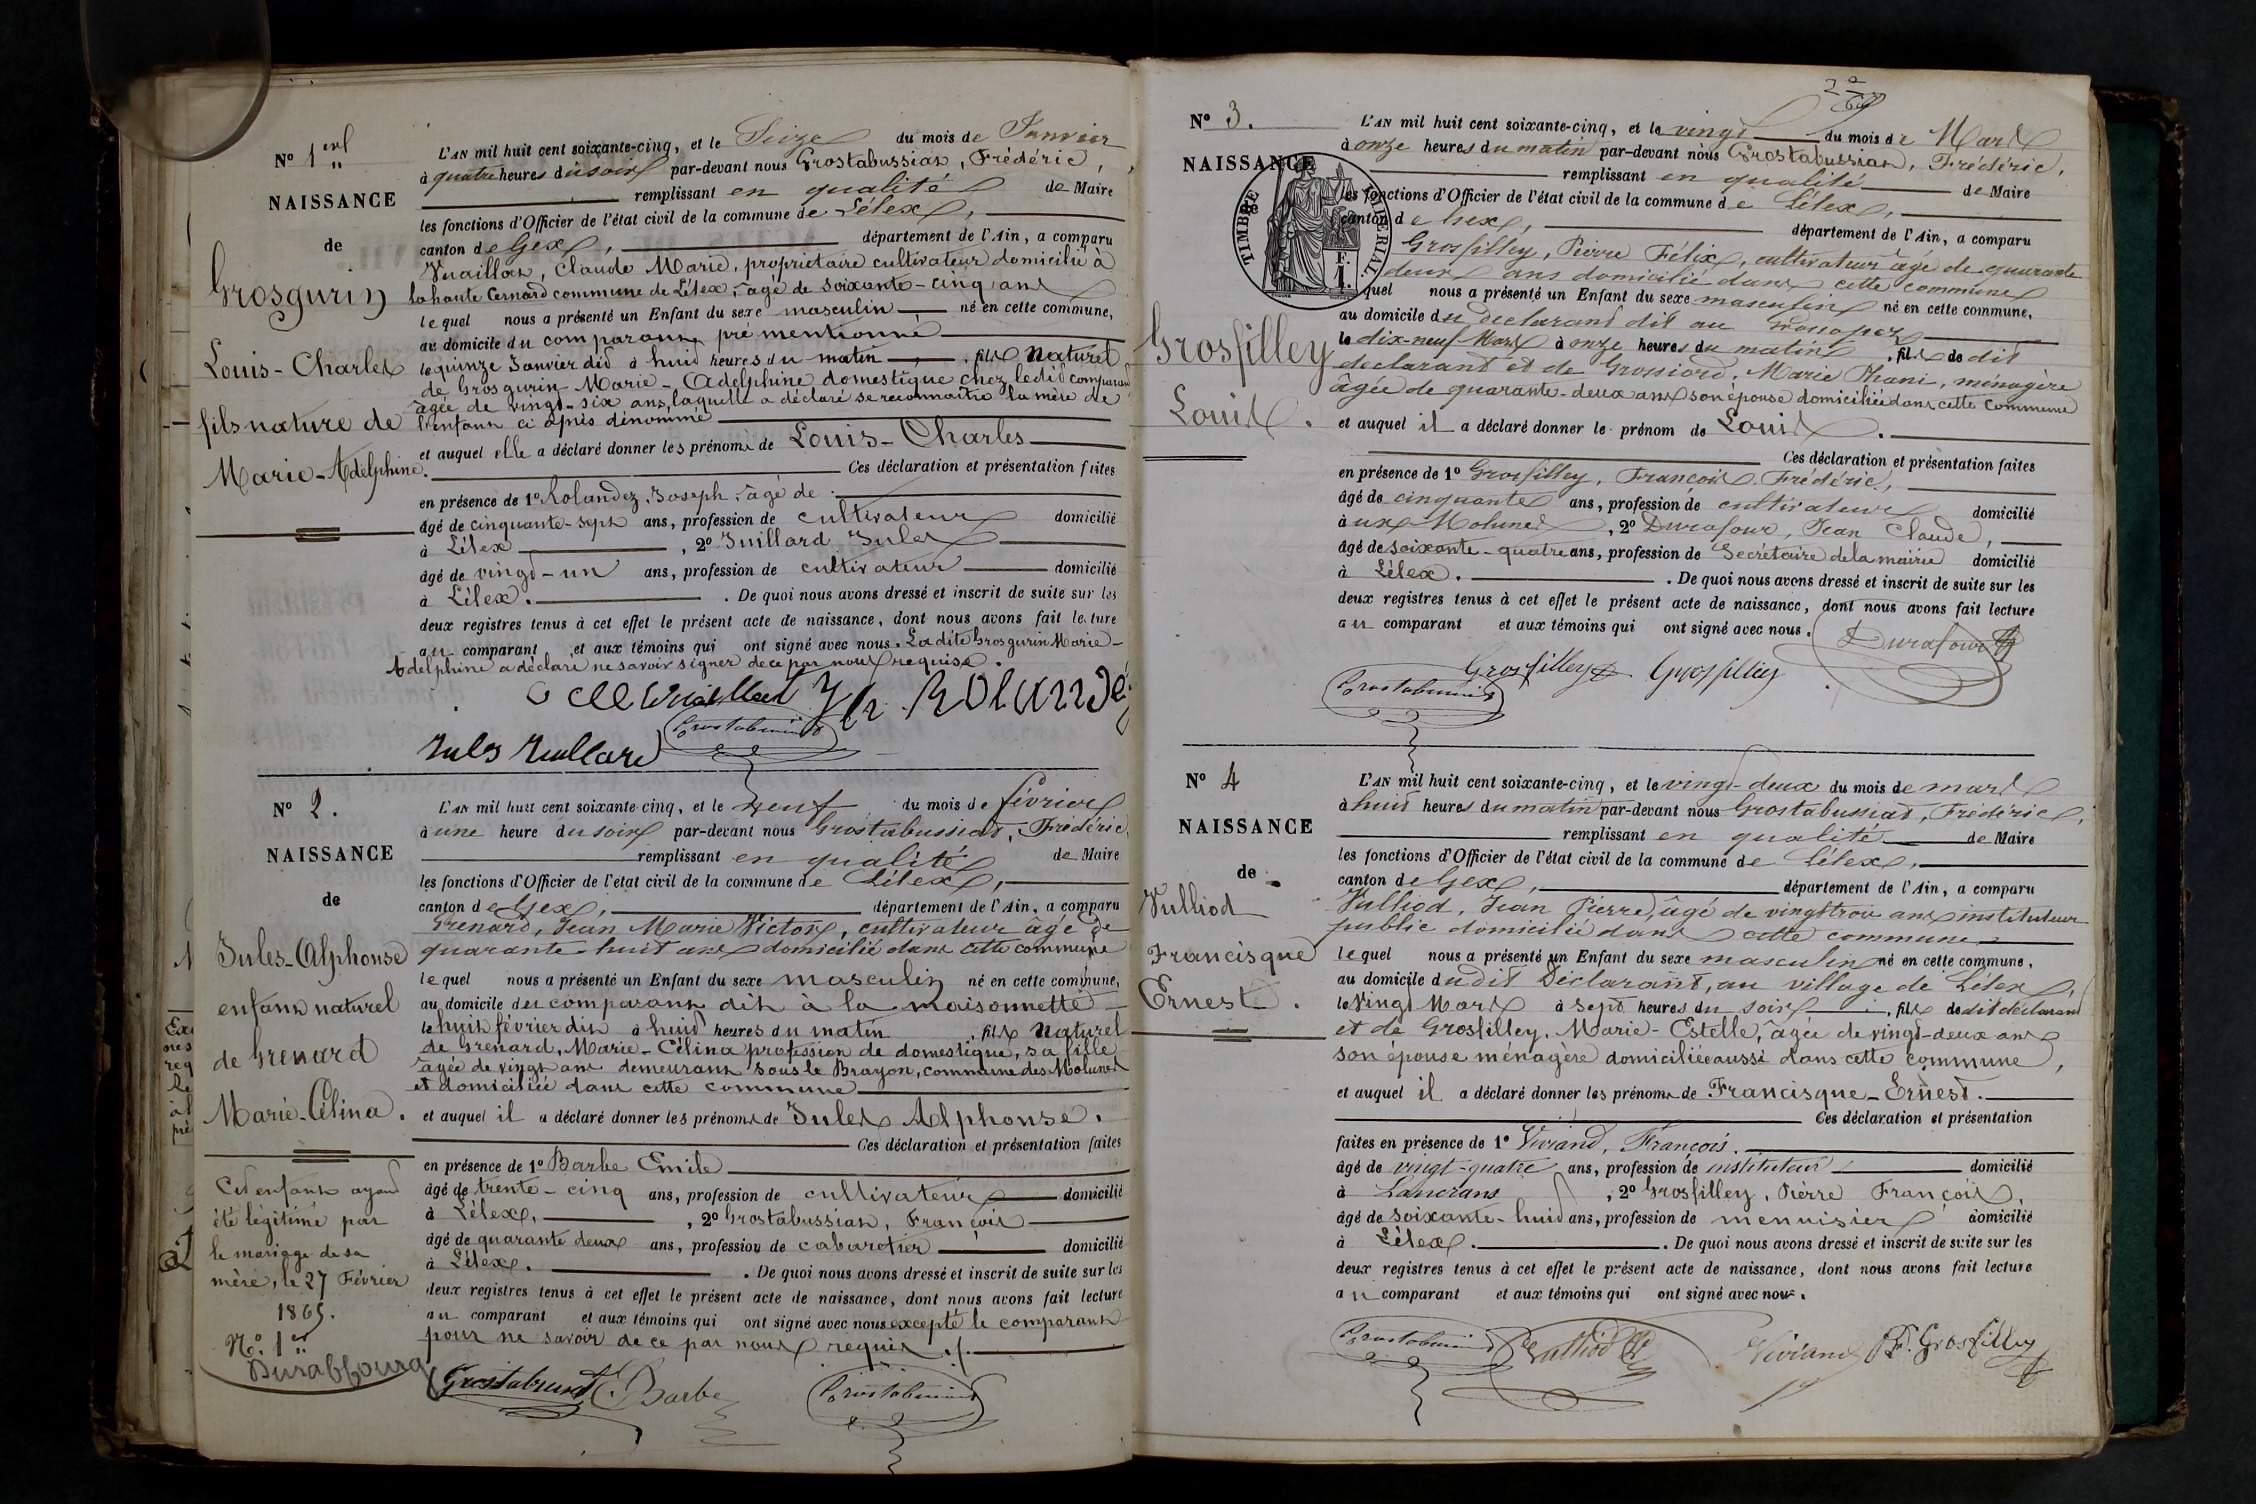 N° 1er
NAISSANCE
de
Grosgurin
Louis-Charles
fils nature de
Marie-Adelphine.
L'AN mil huit cent soixante-cinq, et le Seize du mois de Janvier
à quatre heures du soir par-devant nous Grostabussiat, Frédéric,
remplissant en qualité de Maire
les fonctions d'Officier de l'état civil de la commune de Lélex,
canton de Gex, département de l'Ain, a comparu
Vuaillat, Claude Marie, propriétaire cultivateur domicilié à
la haute Cernard commune de Lélex, âgé de soixante-cinq ans
lequel nous a présenté un Enfant du sexe masculin né en cette commune,
au domicile du comparant pré mentionné
le quinze Janvier dit à huit heures du matin, fils naturel
de Grosgurin Marie-Adelphine domestique chez ledit comparant
âgée de vingt-six ans, laquelle a déclaré se reconnaître la mère de
l'enfant ci après dénommé
et auquel elle a déclaré donner les prénoms de Louis-Charles
Ces déclaration et présentation faites
en présence de 1° Rolandez, Joseph, âgé de
âgé de cinquante-sept ans, profession de cultivateur domicilié
à Lélex, 2° Juillard Jules
âgé de vingt-un ans, profession de cultivateur domicilié
à Lélex. De quoi nous avons dressé et inscrit de suite sur les
deux registres tenus à cet effet le présent acte de naissance, dont nous avons fait lecture
au comparant et aux témoins qui ont signé avec nous. La dite Grosgurin Marie-
Adelphine a déclaré ne savoir signer de ce par nous requise.
Jules Juillard
N° 2.
NAISSANCE
de
Jules-Alphonse
enfant naturel
de Grenard
Marie-Célina.
Cet enfant ayant
été légitimé par
le mariage de sa
mère, le 27 Février
1865.
N°. 1er
Duraffourg
L'AN mil huit cent soixante-cinq, et le neuf du mois de février
à une heure du soir par-devant nous Grostabussiat, Frédéric
remplissant en qualité de Maire
les fonctions d'Officier de l'état civil de la commune de Lélex,
canton de Gex, département de l'Ain, a comparu
Grenard, Jean Marie Victor, cultivateur âgé de
quarante-huit ans domicilié dans cette commune
lequel nous a présenté un Enfant du sexe masculin né en cette commune,
au domicile du comparant dit à la maisonnette
le huit février dit à huit heures du matin, fils naturel
de Grenard, Marie-Célina profession de domestique, sa fille
âgée de vingt ans demeurant sous le Brayon, commune des Molunes
et domiciliée dans cette commune
et auquel il a déclaré donner les prénoms de Jules Alphonse.
Ces déclaration et présentation faites
en présence de 1° Barbe Emile
âgé de trente-cinq ans, profession de cultivateur domicilié
à Lélex, 2° Grostabussiat, François
âgé de quarante deux ans, profession de cabaretier domicilié
à Lélex. De quoi nous avons dressé et inscrit de suite sur les
deux registres tenus à cet effet le présent acte de naissance, dont nous avons fait lecture
au comparant et aux témoins qui ont signé avec nous excepté le comparant
pour ne savoir de ce par nous requis ./.
Barbe
N° 3.
NAISSANCE
TIMBRE IMPÉRIAL
Grosfilley
Louis.
L'AN mil huit cent soixante-cinq, et le vingt du mois de Mars
à onze heures du matin par-devant nous Grostabussiat, Frédéric,
remplissant en qualité de Maire
les fonctions d'Officier de l'état civil de la commune de Lélex,
canton de Gex, département de l'Ain, a comparu
Grosfilley, Pierre Félix, cultivateur âgé de quarante
deux ans domicilié dans cette commune
quel nous a présenté un Enfant du sexe masculin né en cette commune,
au domicile du déclarant dit au
le dix-neuf Mars à onze heures du matin, fils de dit
déclarant et de Grossiord, Marie Phani, ménagère
âgée de quarante-deux ans son épouse domiciliée dans cette commune
et auquel il a déclaré donner le prénom de Louis.
Ces déclaration et présentation faites
en présence de 1° Grosfilley, François Frédéric,
âgé de cinquante ans, profession de cultivateur domicilié
aux Molunes, 2° Durafour, Jean Claude,
âgé de soixante-quatre ans, profession de Secrétaire de la mairie domicilié
à Lélex. De quoi nous avons dressé et inscrit de suite sur les
deux registres tenus à cet effet le présent acte de naissance, dont nous avons fait lecture
au comparant et aux témoins qui ont signé avec nous.
Durafour
Grosfilley Grosfilley
N° 4
NAISSANCE
de
Vulliod
Francisque
Ernest.
L'AN mil huit cent soixante-cinq, et le vingt-deux du mois de mars
à huit heures du matin par-devant nous Grostabussiat, Frédéric,
remplissant en qualité de Maire
les fonctions d'Officier de l'état civil de la commune de Lélex,
canton de Gex, département de l'Ain, a comparu
Vulliod, Jean Pierre, âgé de vingt trois ans instituteur
public domicilié dans cette commune
lequel nous a présenté un Enfant du sexe masculin né en cette commune,
au domicile dudit Déclarant, au village de Lélex,
le vingt Mars à sept heures du soir, fils de dit déclarant
et de Grosfilley, Marie-Estelle, âgée de vingt-deux ans
son épouse ménagère domiciliée aussi dans cette commune,
et auquel il a déclaré donner les prénoms de Francisque-Ernest.
Ces déclaration et présentation
faites en présence de 1° Viviand, François.
âgé de vingt-quatre ans, profession de instituteur domicilié
à Lancrans, 2° Grosfilley, Pierre François,
âgé de soixante-huit ans, profession de menuisier domicilié
à Lélex. De quoi nous avons dressé et inscrit de suite sur les
deux registres tenus à cet effet le présent acte de naissance, dont nous avons fait lecture
au comparant et aux témoins qui ont signé avec nous.
Vulliod Viviand P.F. Grosfilley